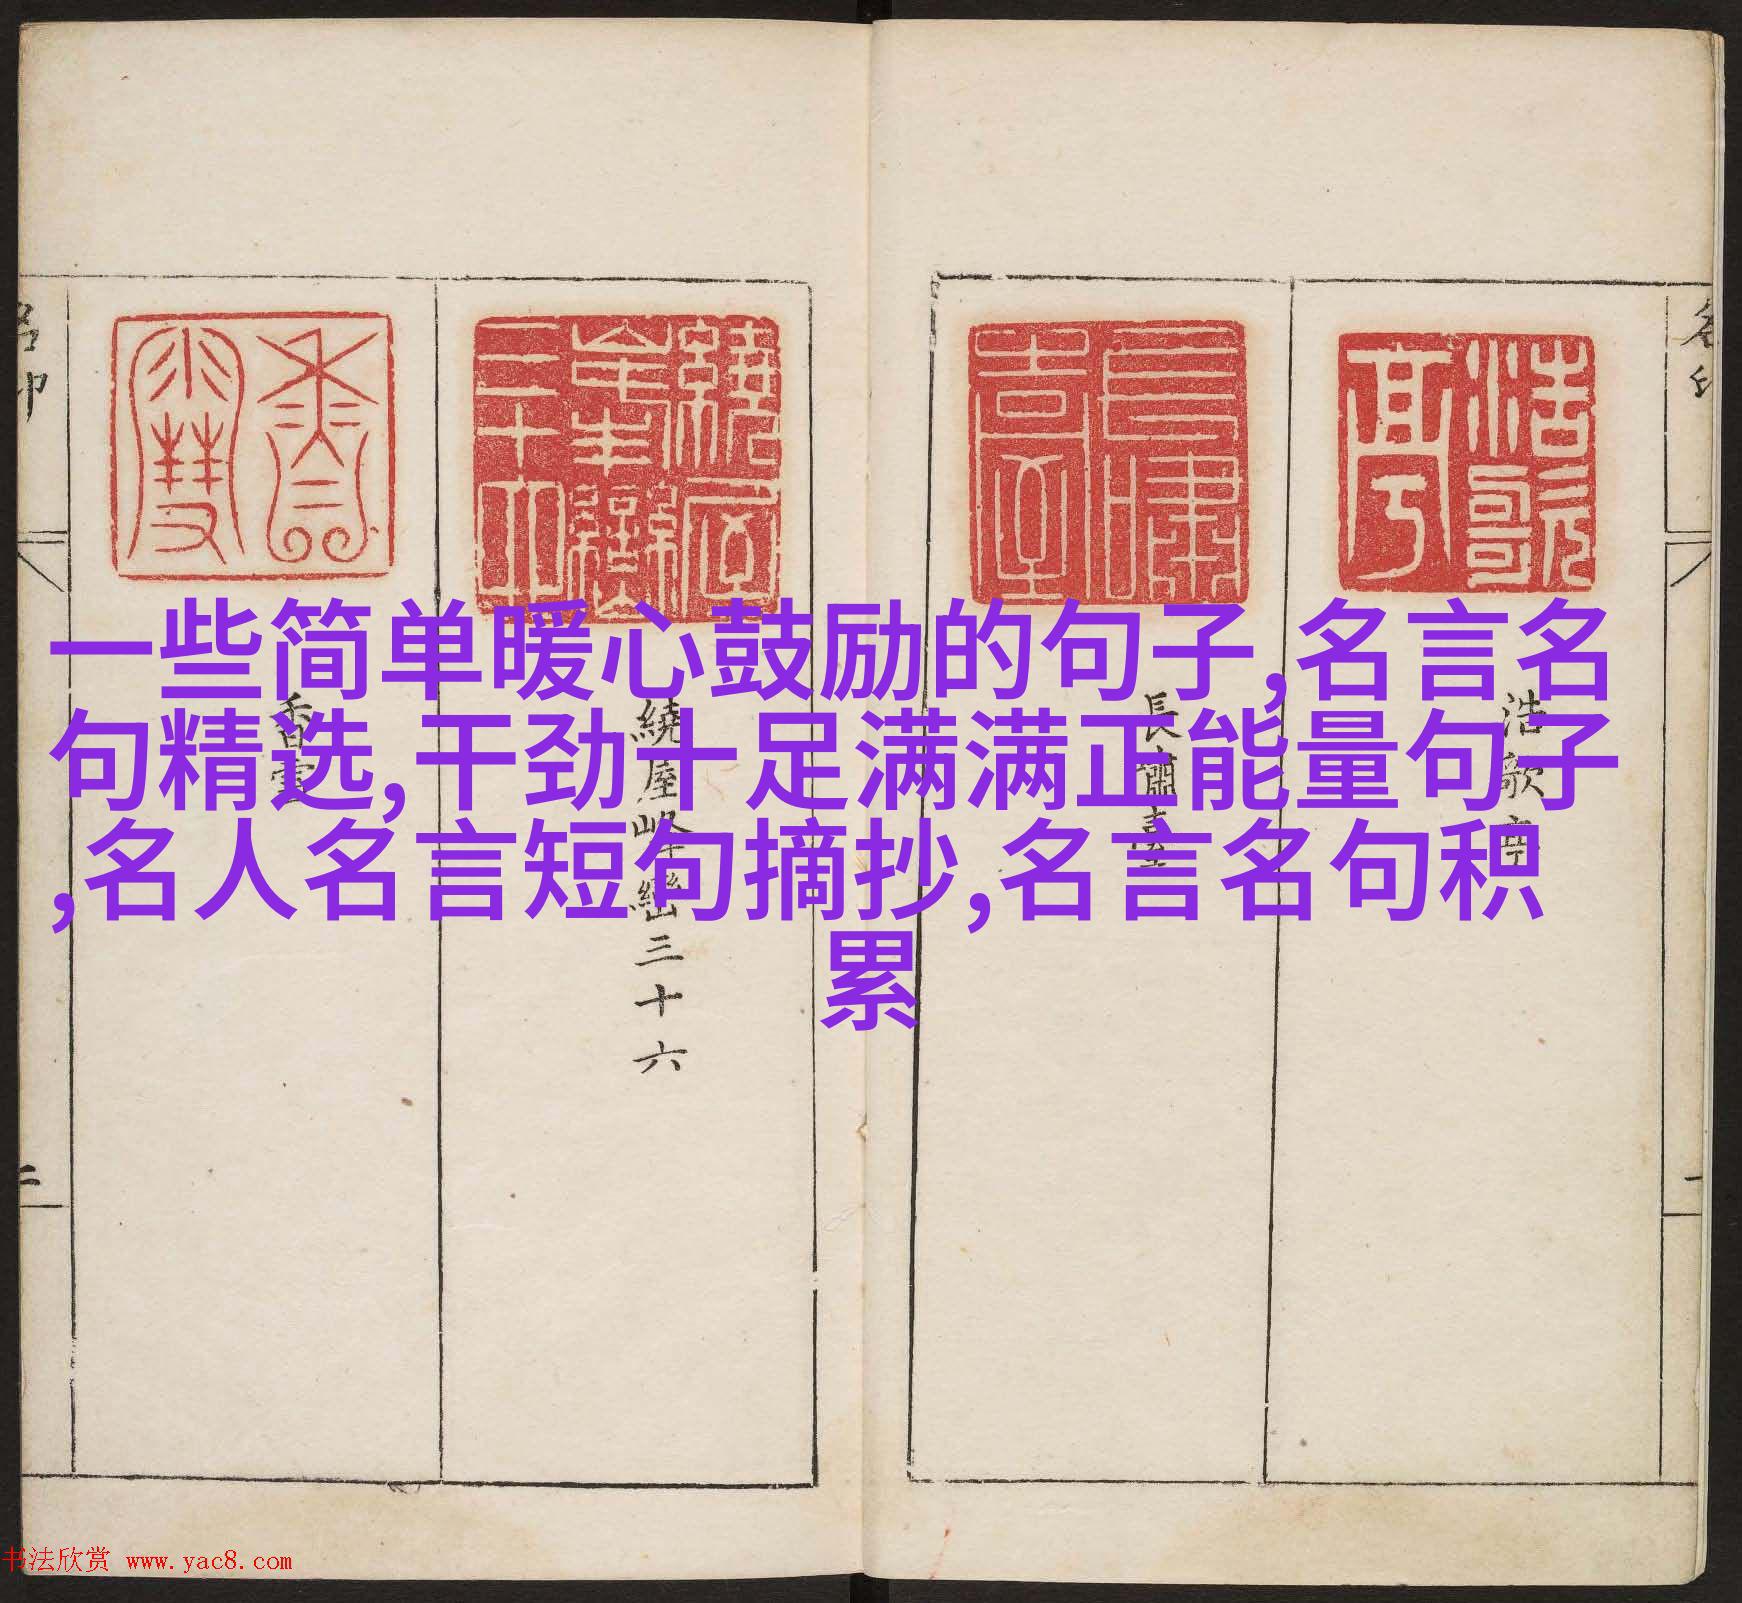 一些简单暖心鼓励的句子,名言名
句精选,干劲十足满满正能量句子
,名人名言短句摘抄,名言名句积
累
浩歌亭
長嘯臺
繞屋峰巒三十六
香雪
二
书法欣赏 www.yac8.com